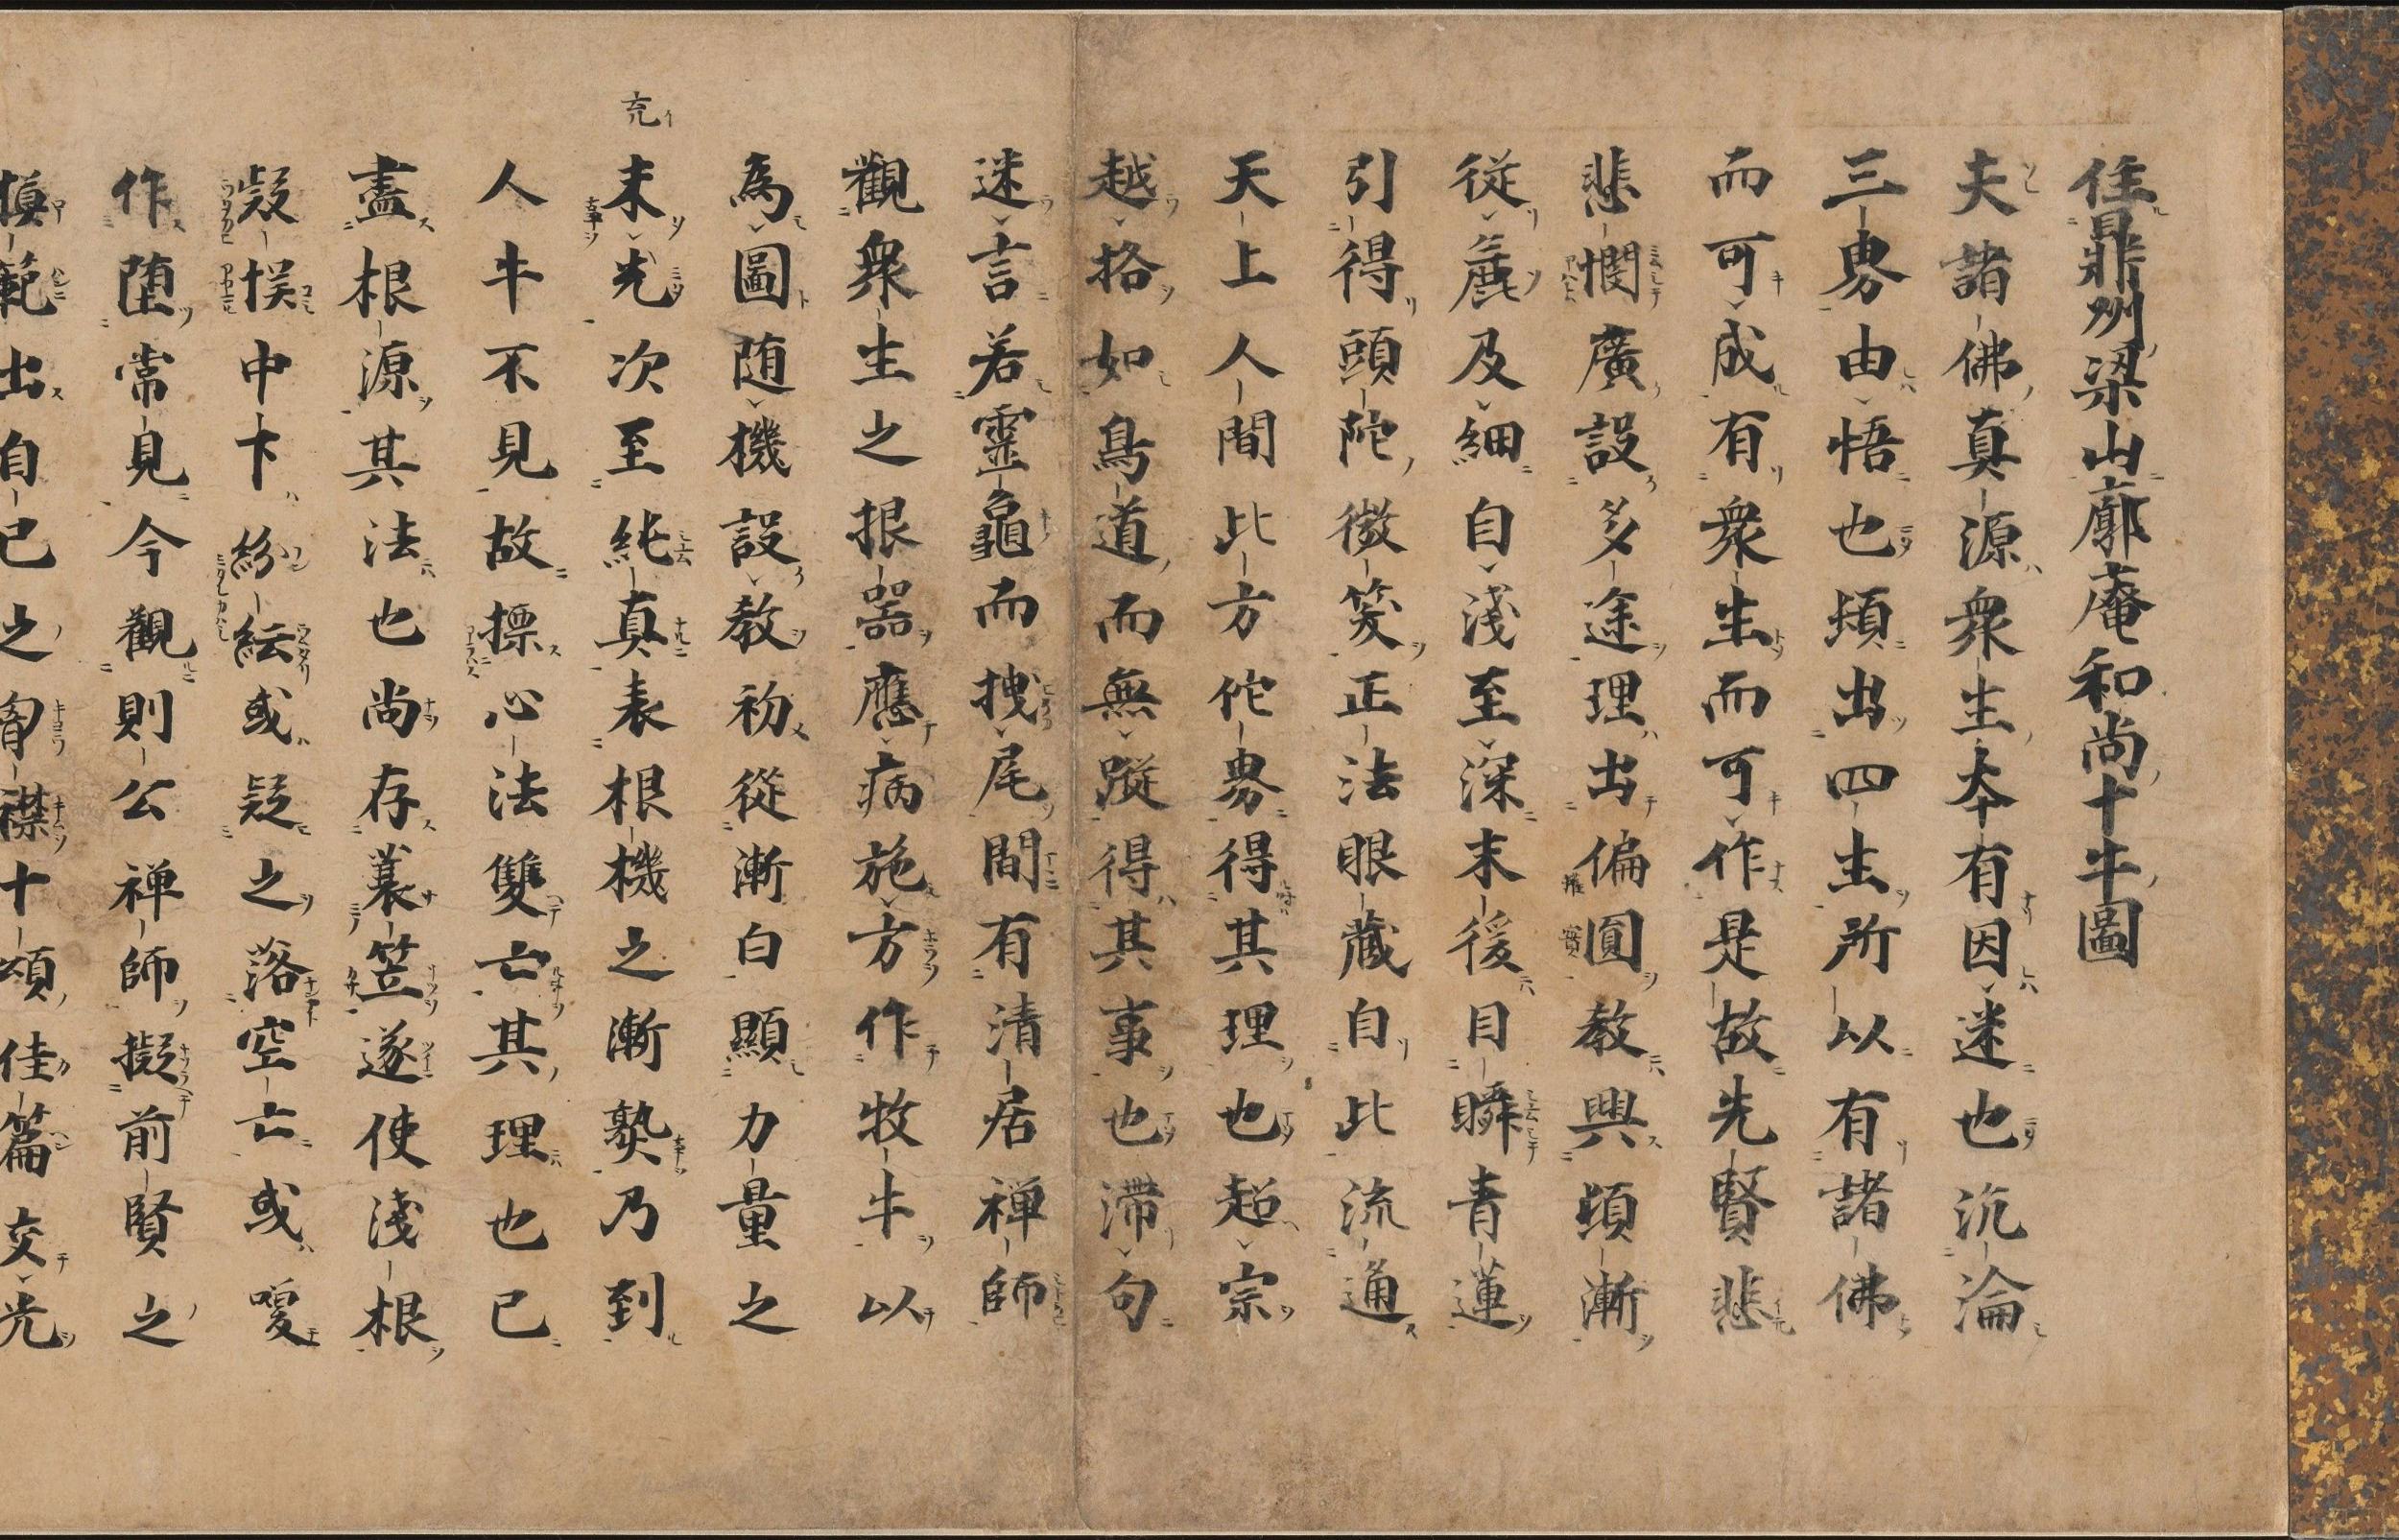 住鼎州梁山廓庵和尚十牛圖
夫諸佛真源衆生本有因迷也沉淪
三界由悟也頓出四生所以有諸佛
而可成有衆生而可作是故先賢悲
悲憫廣設多途理出偏圓教興頓漸
從麁及細自淺至深末後目瞬青蓮
引得頭陀微笑正法眼藏自此流通
天上人間此方佗界得其理也超宗
越格如鳥道而無蹤得其事也滯句
迷言若靈龜而拽尾間有清居禅師
觀衆生之根器應病施方作牧牛以
為圖随機設教初從漸白顯力量之
充
未充次至純真表根機之漸熟乃到
人牛不見故標心法雙亡其理也已
盡根源其法也尚存蓑笠遂使淺根
疑悮中下紛紜或疑之落空亡或喚
作堕常見今觀則公禅師擬前賢之
模範出自己之胷襟十頌佳篇交光